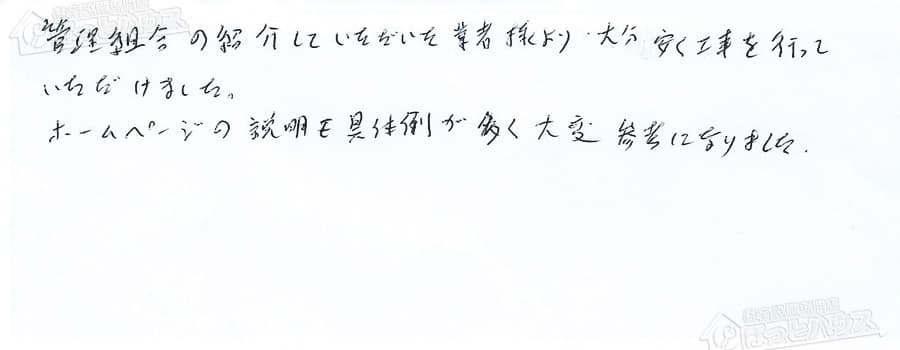 管理組合の紹介していただいた業者様より、大分安く工事を行って
いただけました。
ホームページの説明も具体例が多く大変参考になりました.
ほっとハウス